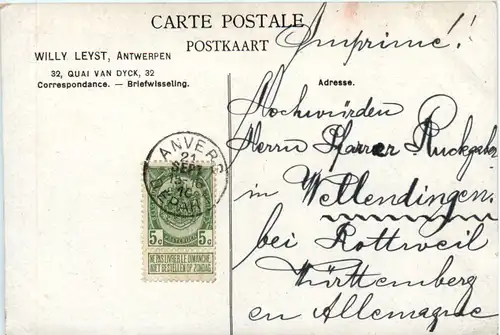 CARTE POSTALE
POSTKAART
Imprimé!!
WILLY LEYST, ANTWERPEN
32, QUAI VAN DYCK, 32
Correspondance. — Briefwisseling.
Adresse.
Hochwürden
Herrn Pfarrer
in Wellendingen
bei Rottweil
Württemberg
en Allemagne
ANVERS
21
SEPT
DEPART
5c 5c
NE PAS LIVRER LE DIMANCHE
NIET BESTELLEN OP ZONDAG